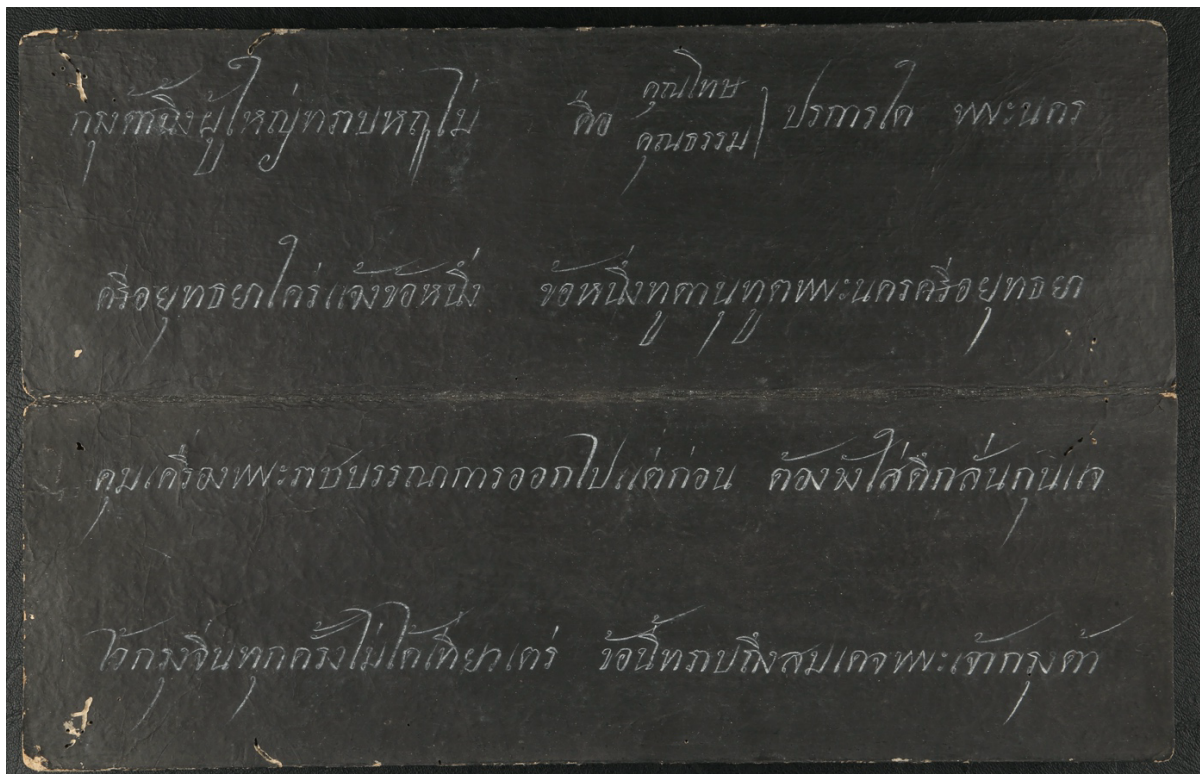 กรุงต้าฉิ้งผู้ใหญ่ทราบหฤๅไม่ คือ คุณโทษ คุณธรรม ปรการใด พพระนคร
ศรีอยุทธยาใคร่แจ้งข้อหนึ่ง ข้อหนึ่งทูตานุทูตพพระนครศรีอยุทธยา
คุมเครื่องพพระราชบรรณาการออกไปแต่ก่อน ต้องขังใส่ตึกลั่นกุนแจ
ไว้กรุงจีนทุกครั้งไม่ได้เที่ยวเตร่ ข้อนี้ทราบถึงสมเดจพพระเจ้ากรุงต้า